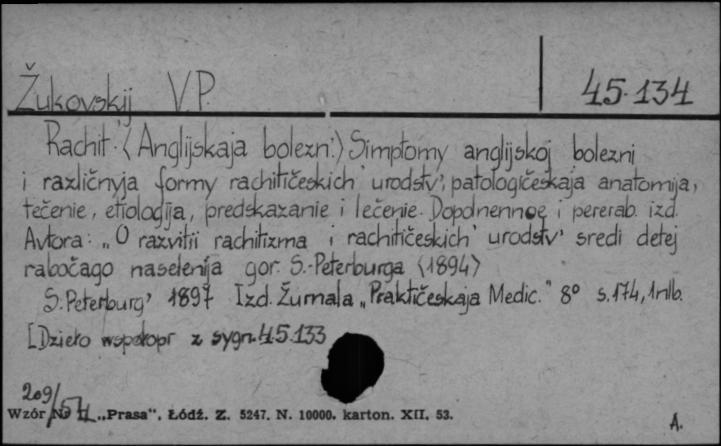 Žukovskij V.P. 45.134
Rachit' (Anglijskaja bolezn'.) Simptomy anglijskoj bolezni
i različnyja formy rachitičeskich' urodstv', patologičeskaja anatomija,
tečenie, etiologija, predskazanie i lečenie. Dopolnennoe i pererab. izd.
Avtora: „O razvitii rachitizma i rachitičeskich' urodstv' sredi detej
rabočago naselenija gor. S.-Peterburga (1894)
S. Peterburg' 1897 Izd. Žurnala „Praktičeskaja Medic." 8° s. 174, 1 nlb.
[Dzieło współopr z sygn. 45.133
209/57
Wzór „Prasa", Łódź. Z. 5247. N. 10000. karton. XII. 53.
A.